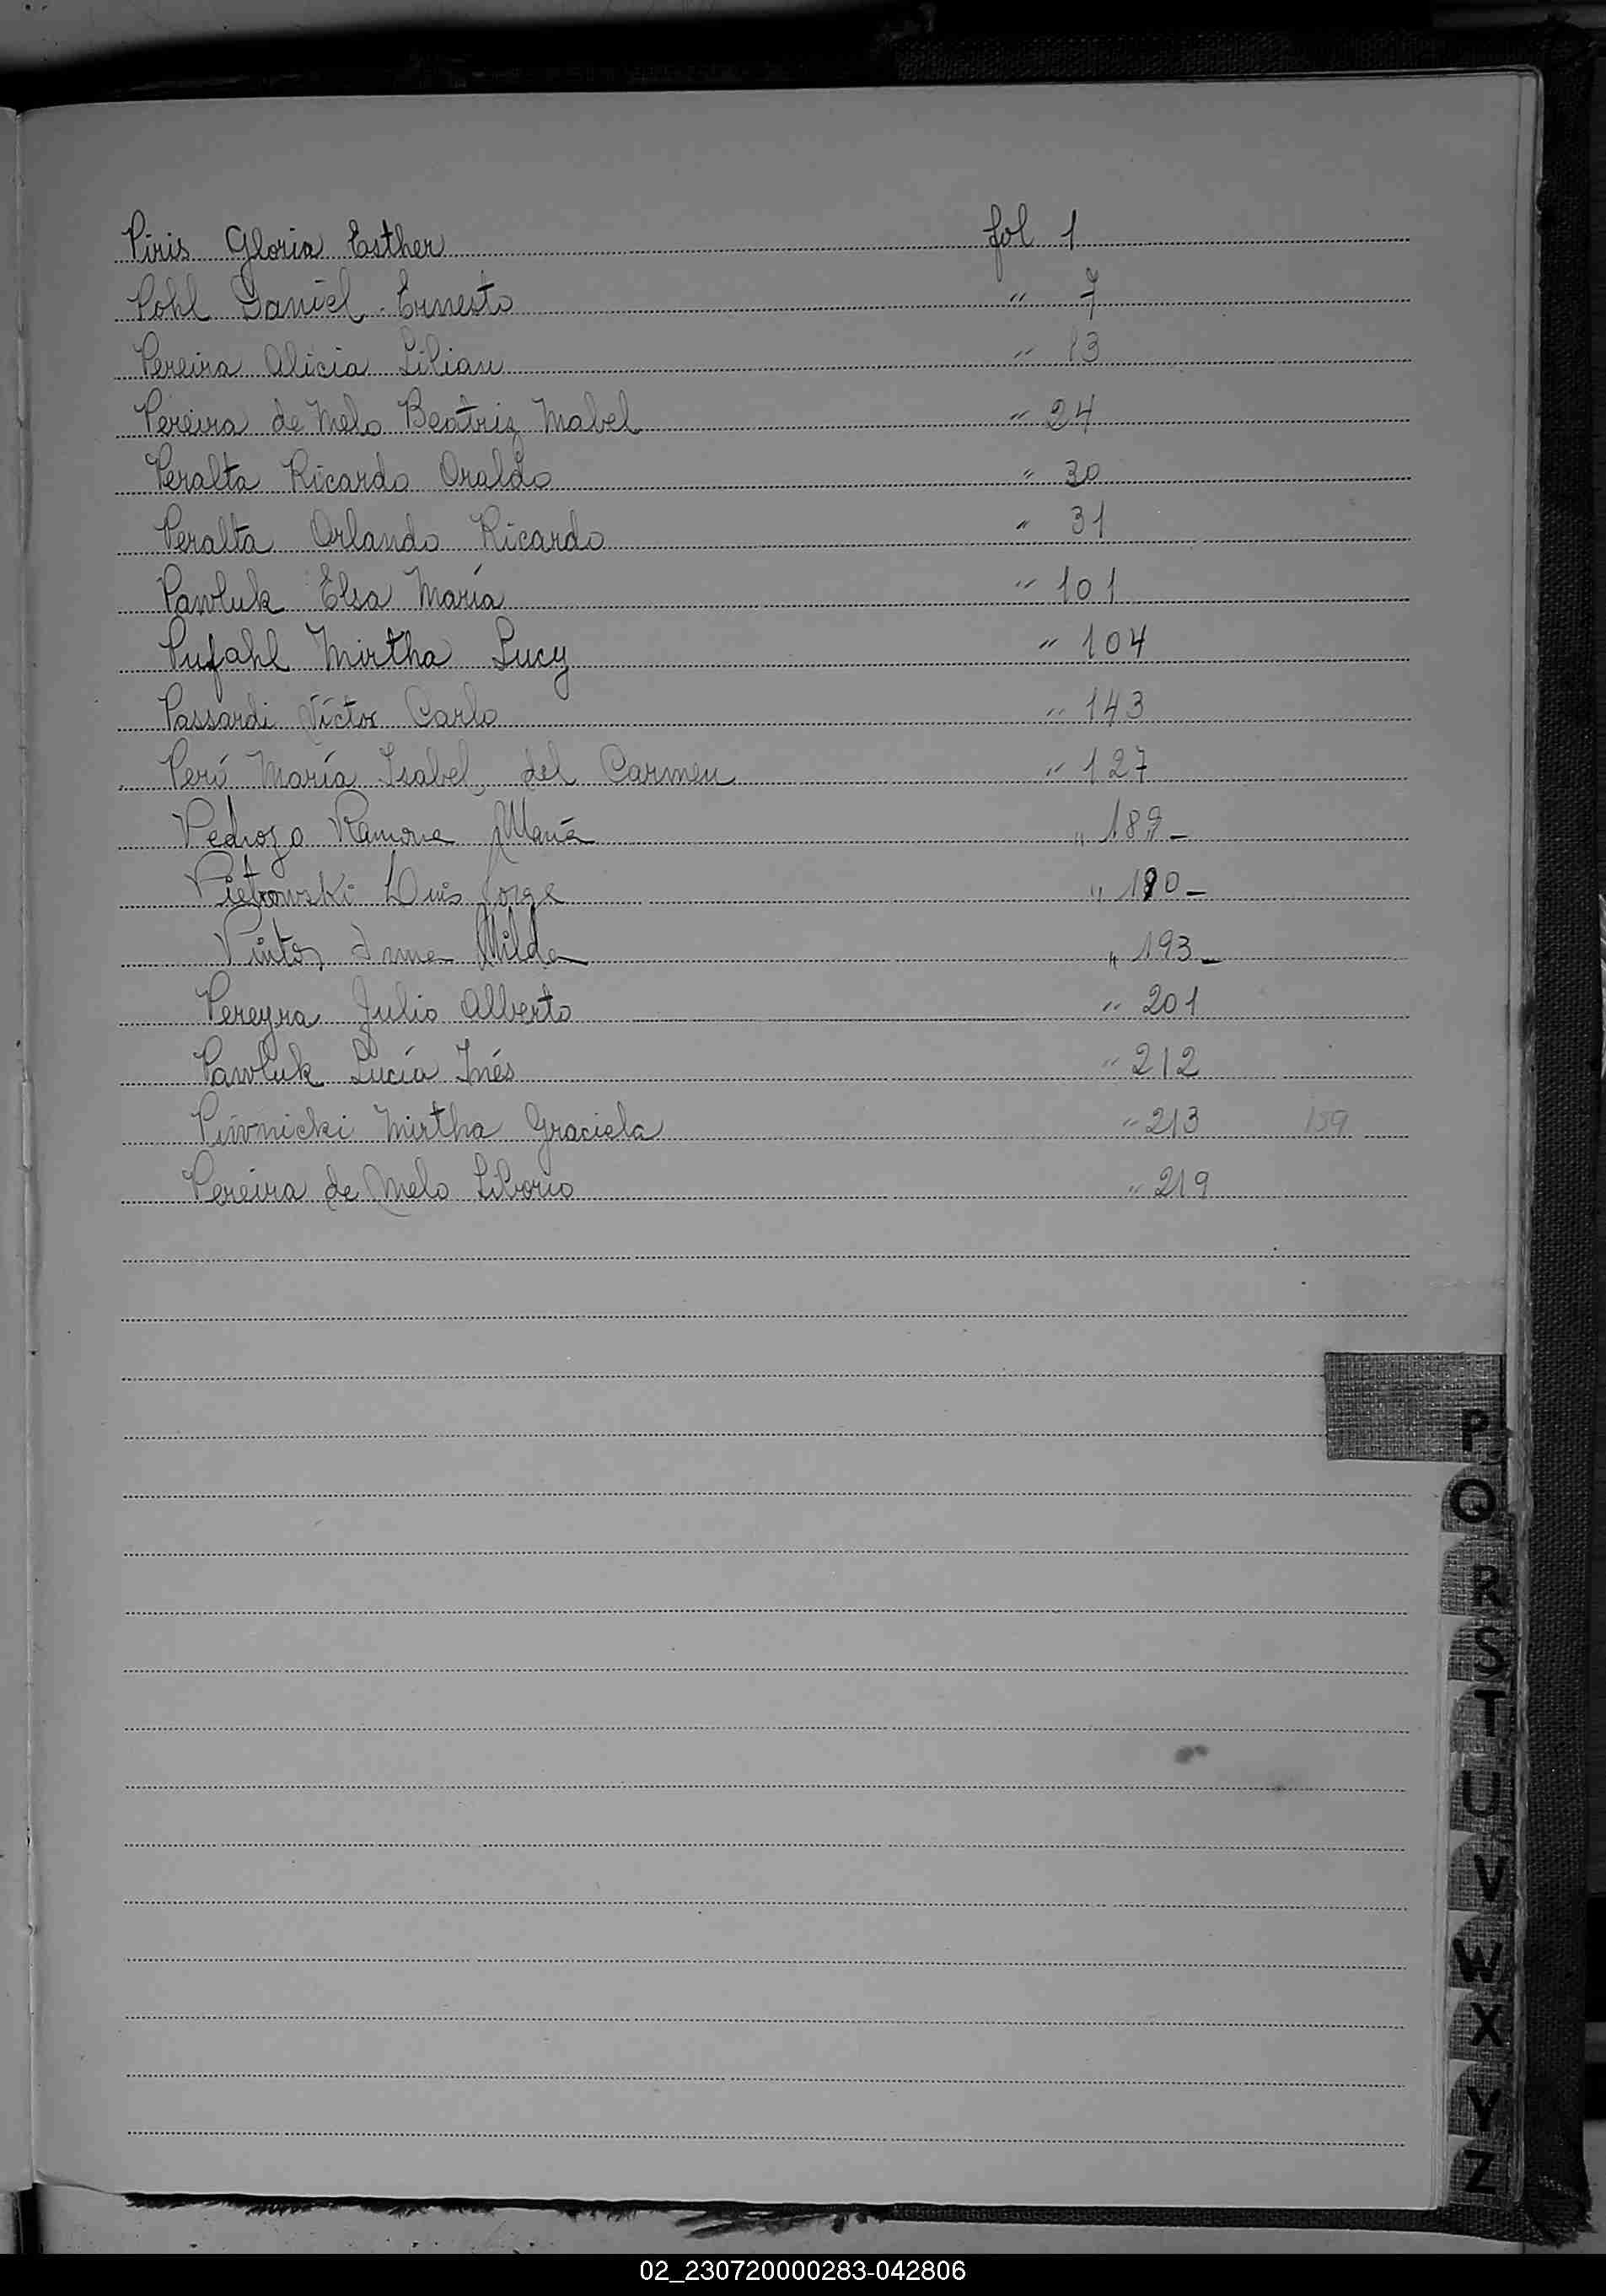 Piris Gloria Esther fol 1
Pohl Daniel Ernesto " 7
Pereira Alicia Lilian " 13
Pereira de Melo Beatriz Mabel " 24
Peralta Ricardo Oraldo " 30
Peralta Orlando Ricardo " 31
Pawluk Elsa María " 101
Pufahl Mirtha Lucy " 104
Passardi Víctor Carlo " 143
Perú María Isabel del Carmen " 127
Pedrozo Ramona María " 189-
Pietrowski Luis Jorge " 190-
Pintos Irma Nilda " 193-
Pereyra Julio Alberto " 201
Pawluk Lucía Inés " 212
Piwnicki Mirtha Graciela " 213 159
Pereira de Melo Liborio " 219
P
Q
R
S
T
U
V
W
X
Y
Z
02_230720000283-042806